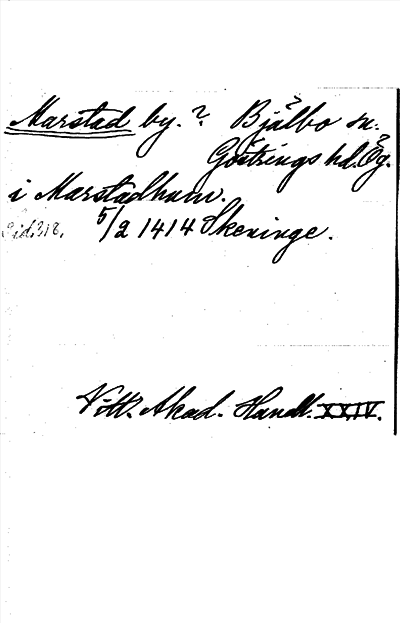 Marstad by.? Bjälbo sn:
Göstrings hd. Ög.
i Marstadhum.
Sid. 318. 5/2 1414 Skeninge.
Vitt. Akad. Handl. XXIV.